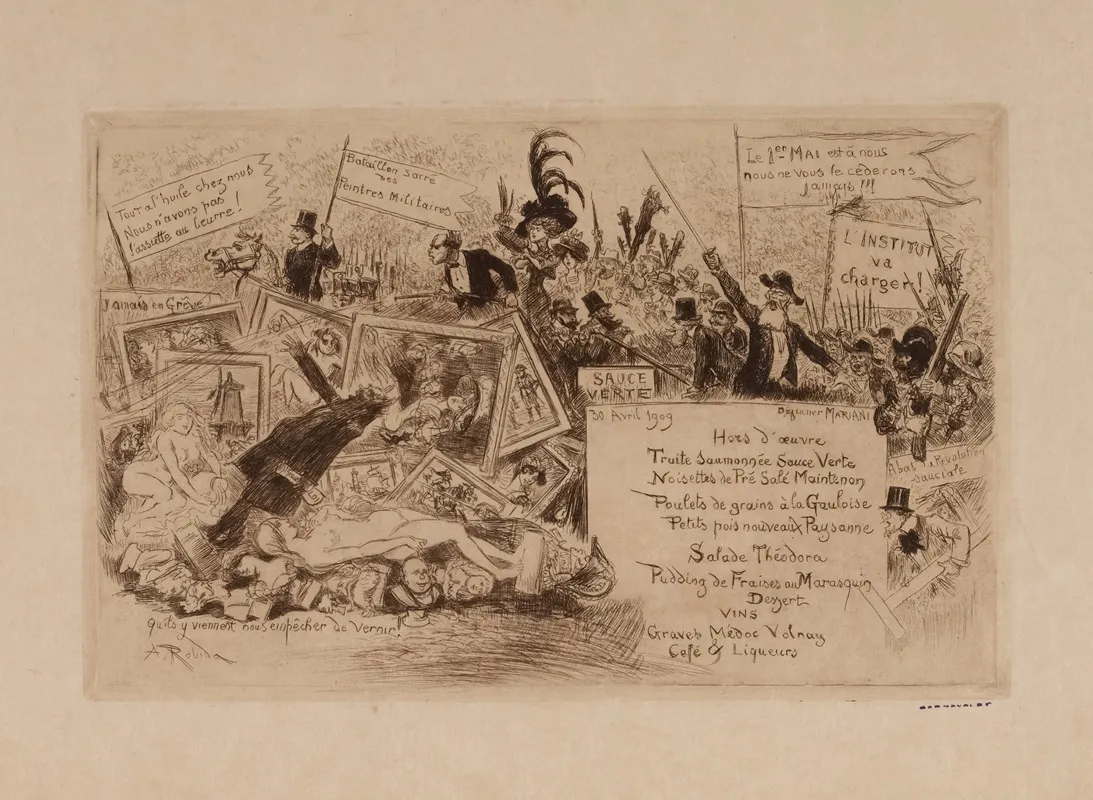 Tout à l'huile chez nous
Nous n'avons pas
l'assiette au beurre !
Bataillon sacré
des
Peintres Militaires
Le 1er MAI est à nous
nous ne vous le cèderons
jamais !!!
L'INSTITUT
va
charger !
Jamais en Grève
SAUCE
VERTE
30 Avril 1909
Déjeuner MARIANI
Hors d'œuvre
Truite Saumonnée Sauce Verte
Noisettes de Pré Salé Maintenon
Poulets de grains à la Gauloise
Petits pois nouveaux Paysanne
Salade Théodora
Pudding de Fraises au Marasquin
Dessert
VINS
Graves Médoc Volnay
Café & Liqueurs
Abas la Révolution
sauciale
Qu'ils y viennent nous empêcher de Vernir !
A. Robida
CARNAVALET